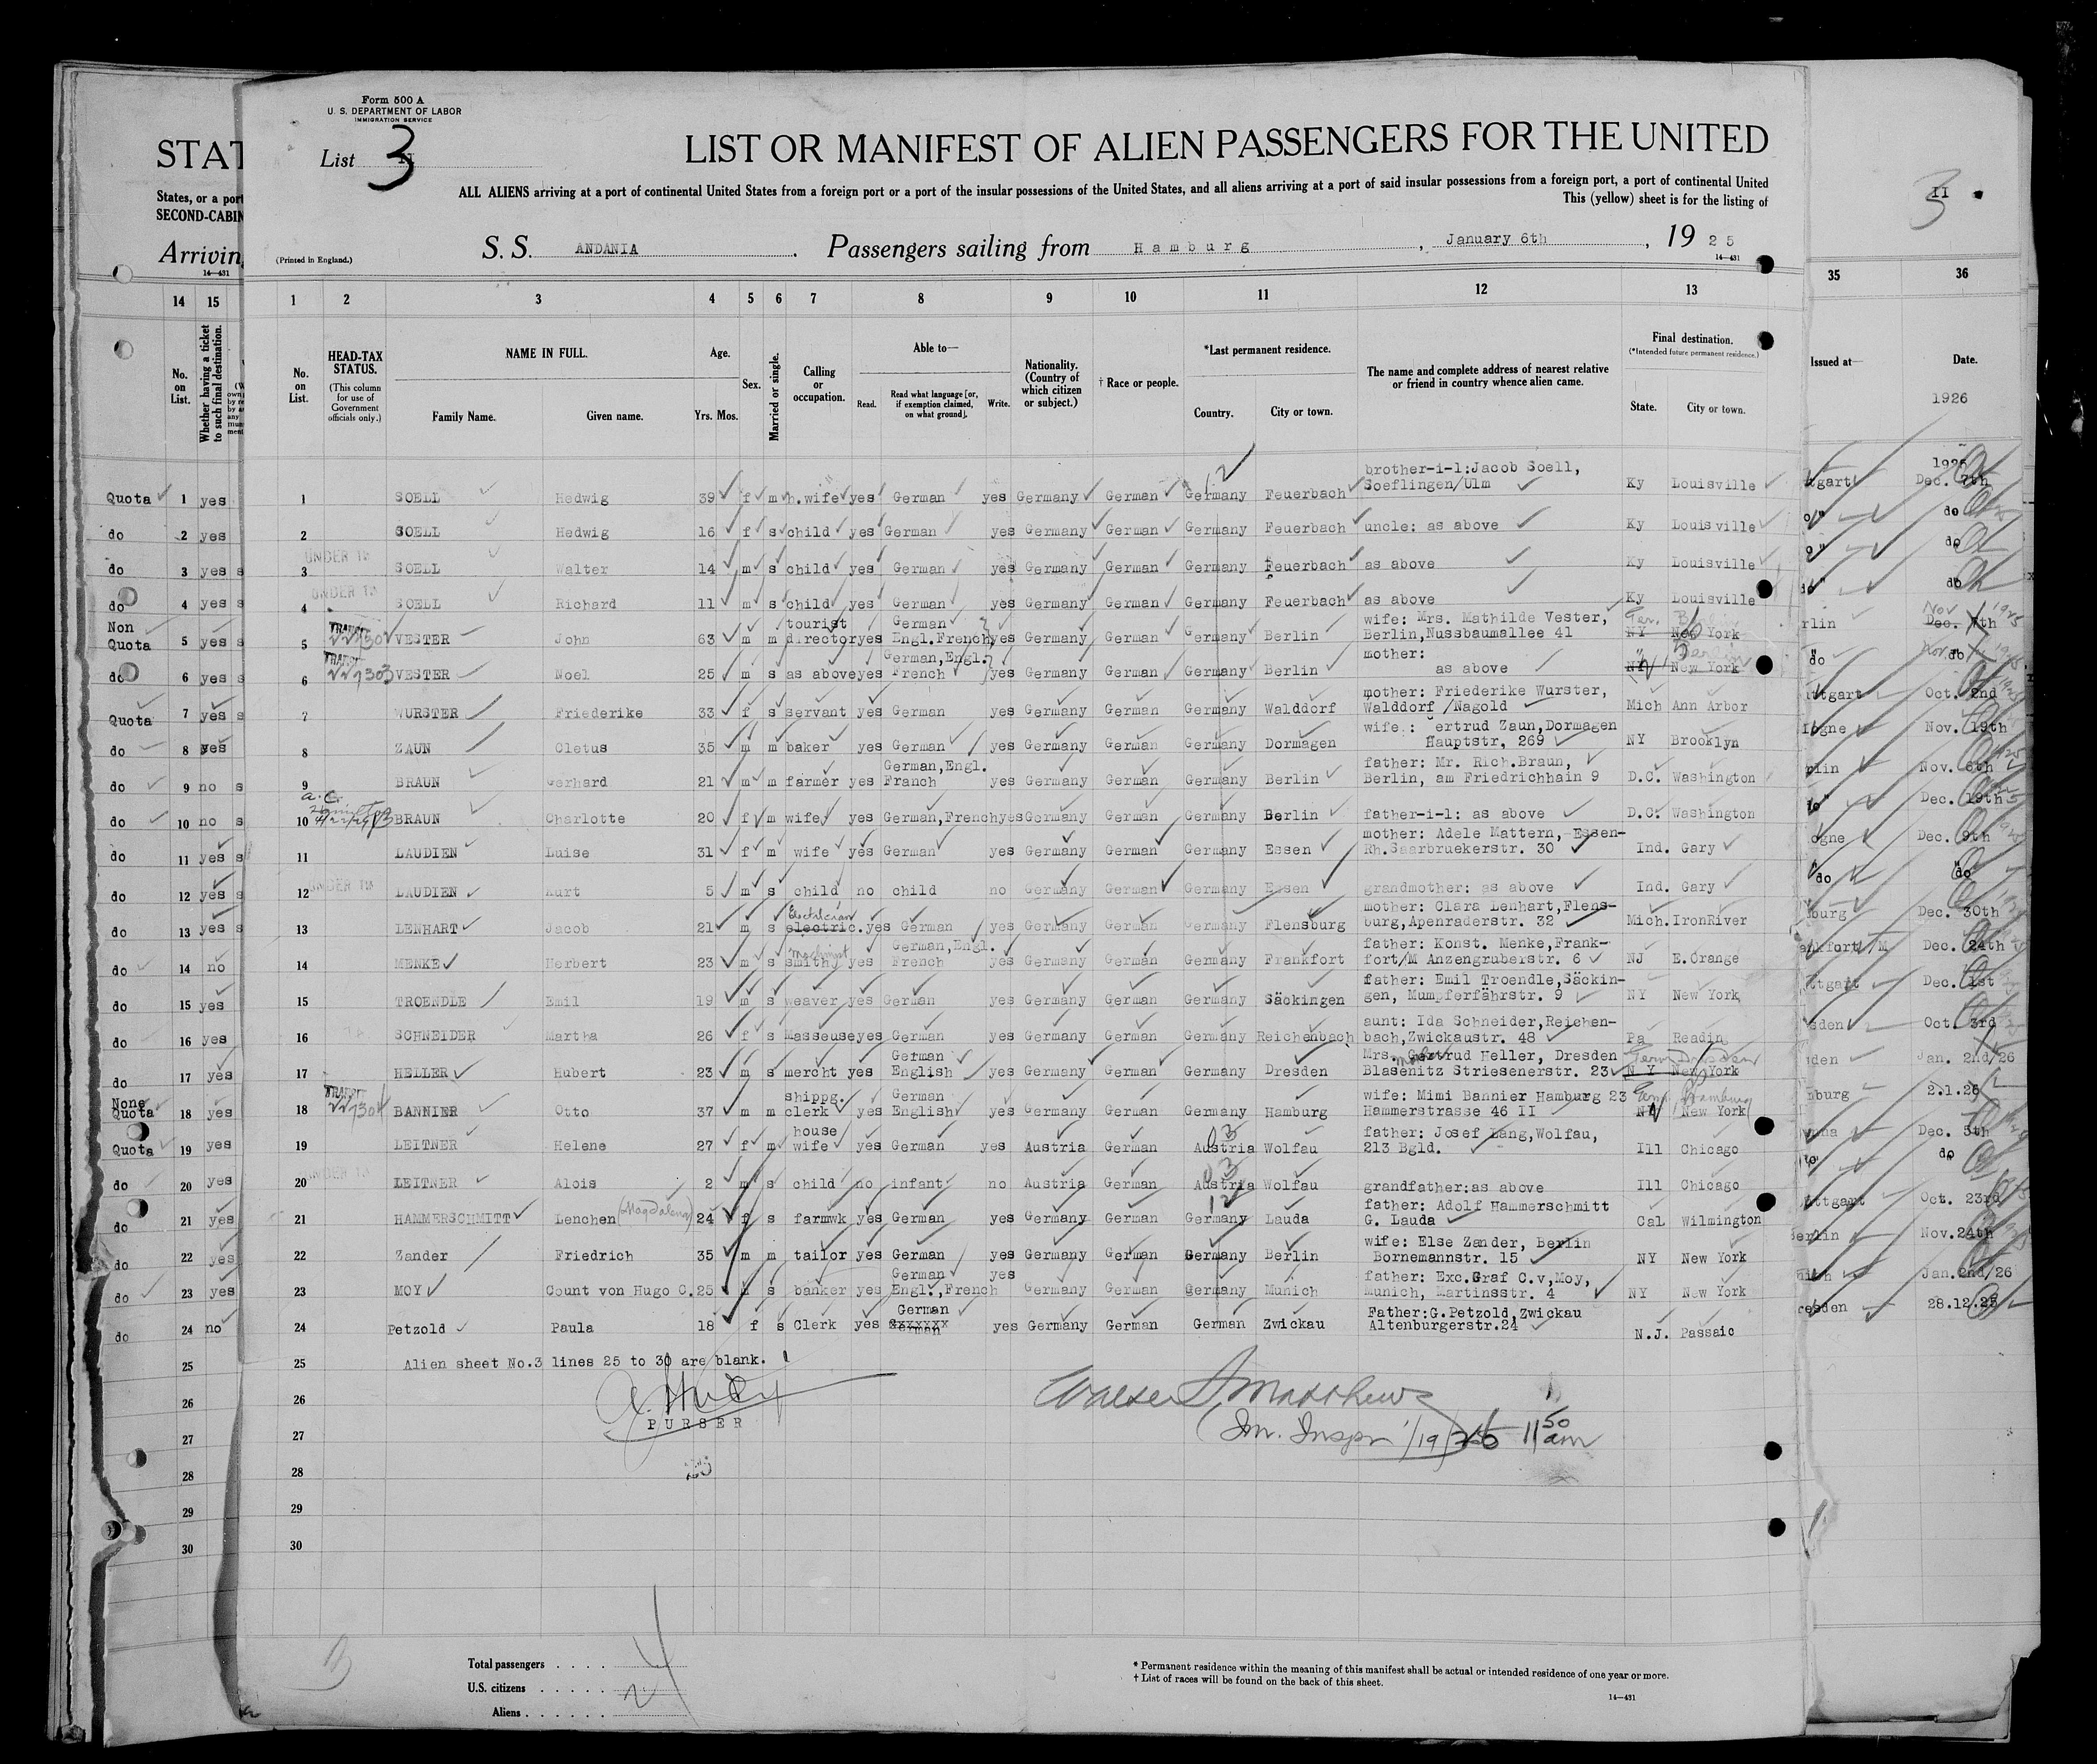 Form 500 A
U. S. DEPARTMENT OF LABOR
IMMIGRATION SERVICE
List 3
LIST OR MANIFEST OF ALIEN PASSENGERS FOR THE UNITED
ALL ALIENS arriving at a port of continental United States from a foreign port or a port of the insular possessions of the United States, and all aliens arriving at a port of said insular possessions from a foreign port, a port of continental United
This (yellow) sheet is for the listing of
STAT
States, or a port
SECOND-CABIN
Arriving
14—431
(Printed in England.)
S. S. ANDANIA. Passengers sailing from Hamburg, January 6th, 19 25
14—431
3 II
14 15 1 2 3 4 5 6 7 8 9 10 11 12 13 35 36
No. on List. Whether having a ticket to such final destination.
No. on List. HEAD-TAX STATUS. (This column for use of Government officials only.)
NAME IN FULL. Family Name. Given name.
Age. Yrs. Mos. Sex. Married or single. Calling or occupation.
Able to— Read. Read what language [or, if exemption claimed, on what ground]. Write.
Nationality. (Country of which citizen or subject.) † Race or people.
*Last permanent residence. Country. City or town.
The name and complete address of nearest relative or friend in country whence alien came.
Final destination. (*Intended future permanent residence.) State. City or town.
Issued at— Date.
1926
brother-i-l:Jacob Soell,
Quota 1 yes 1 SOELL Hedwig 39 f m h.wife yes German yes Germany German Germany Feuerbach Soeflingen/Ulm Ky Louisville Dec. 7th
do 2 yes 2 SOELL Hedwig 16 f s child yes German yes Germany German Germany Feuerbach uncle: as above Ky Louisville do
UNDER 16
do 3 yes s 3 SOELL Walter 14 m s child yes German yes Germany German Germany Feuerbach as above Ky Louisville do
UNDER 16
do 4 yes s 4 SOELL Richard 11 m s child yes German yes Germany German Germany Feuerbach as above Ky Louisville do
Non tourist German wife: Mrs. Mathilde Vester, Ger. Nov 1925
Quota 5 yes s 5 VESTER John 63 m m director yes Engl.French yes Germany German Germany Berlin Berlin,Nussbaumallee 41 NY New York rlin Dec. 7th
German,Engl. mother: Berlin
do 6 yes s 6 VESTER Noel 25 m s as above yes French yes Germany German Germany Berlin as above NY New York do do
mother: Friederike Wurster,
Quota 7 yes s 7 WURSTER Friederike 33 f s servant yes German yes Germany German Germany Walddorf Walddorf /Nagold Mich Ann Arbor ttgart Oct. 2nd
wife : ertrud Zaun,Dormagen
do 8 yes 8 ZAUN Cletus 35 m m baker yes German yes Germany German Germany Dormagen Hauptstr, 269 NY Brooklyn ogne Nov. 19th
German,Engl. father: Mr. Rich.Braun,
do 9 no s 9 BRAUN Gerhard 21 m m farmer yes Franch yes Germany German Germany Berlin Berlin, am Friedrichhain 9 D.C. Washington rlin Nov. 6th
do 10 no s 10 BRAUN Charlotte 20 f m wife yes German,French yes Germany German Germany Berlin father-i-l: as above D.C. Washington Dec. 19th
mother: Adele Mattern, Essen-
do 11 yes s 11 LAUDIEN Luise 31 f m wife yes German yes Germany German Germany Essen Rh.Saarbruekerstr. 30 Ind. Gary ogne Dec. 9th
UNDER 16
do 12 yes s 12 LAUDIEN Kurt 5 m s child no child no Germany German Germany Essen grandmother: as above Ind. Gary do do
Electrician mother: Clara Lenhart,Flens-
do 13 yes s 13 LENHART Jacob 21 m s electric. yes German yes Germany German Germany Flensburg burg,Apenraderstr. 32 Mich. IronRiver burg Dec. 30th
Machinist German,Engl. father: Konst. Menke,Frank-
do 14 no 14 MENKE Herbert 23 m s smithy yes French yes Germany German Germany Frankfort fort/M Anzengruberstr. 6 NJ E.Orange ankfort/M Dec. 24th
father: Emil Troendle,Säckin-
do 15 yes 15 TROENDLE Emil 19 m s weaver yes German yes Germany German Germany Säckingen gen, Mumpferfährstr. 9 NY New York ttgart Dec. 1st
aunt: Ida Schneider,Reichen-
do 16 yes 16 SCHNEIDER Martha 26 f s Masseuse yes German yes Germany German Germany Reichenbach bach,Zwickaustr. 48 Pa Readin sden Oct. 3rd
German Mrs. Gertrud Heller, Dresden Germ Dresden
do 17 yes 17 HELLER Hubert 23 m s mercht yes English yes Germany German Germany Dresden Blasenitz Striesenerstr. 23 N Y New York sden Jan. 2nd/26
None shippg. German wife: Mimi Bannier Hamburg 23 Germ Hamburg
Quota 18 yes 18 BANNIER Otto 37 m m clerk yes English yes Germany German Germany Hamburg Hammerstrasse 46 II NY New York mburg 2.1.26
house father: Josef Lang,Wolfau,
Quota 19 yes 19 LEITNER Helene 27 f m wife yes German yes Austria German Austria Wolfau 213 Bgld. Ill Chicago nna Dec. 5th
UNDER 16
do 20 yes 20 LEITNER Alois 2 m s child no infant no Austria German Austria Wolfau grandfather:as above Ill Chicago do
father: Adolf Hammerschmitt
do 21 yes 21 HAMMERSCHMITT Lenchen (Magdalena) 24 f s farmwk yes German yes Germany German Germany Lauda G. Lauda Cal Wilmington ttgart Oct. 23rd
wife: Else Zander, Berlin
do 22 yes 22 Zander Friedrich 35 m m tailor yes German yes Germany German Germany Berlin Bornemannstr. 15 NY New York Berlin Nov.24th
German yes father: Exc.Graf C.v,Moy,
do 23 yes 23 MOY Count von Hugo C. 25 m s banker yes Engl.,French Germany German Germany Munich Munich, Martinsstr. 4 NY New York nich Jan.2nd/26
German Father:G.Petzold,Zwickau
do 24 no 24 Petzold Paula 18 f s Clerk yes yes Germany German German Zwickau Altenburgerstr.24 N.J. Passaic resden 28.12.25
25 25 Alien sheet No.3 lines 25 to 30 are blank.
26 26 Walter S Matthews
PURSER
27 27 Im. Inspr 1/19/26 11 50 am
28 28
29 29
30 30
Total passengers . . . .
U.S. citizens . . . . .
Aliens . . . . . .
* Permanent residence within the meaning of this manifest shall be actual or intended residence of one year or more.
† List of races will be found on the back of this sheet.
14—431